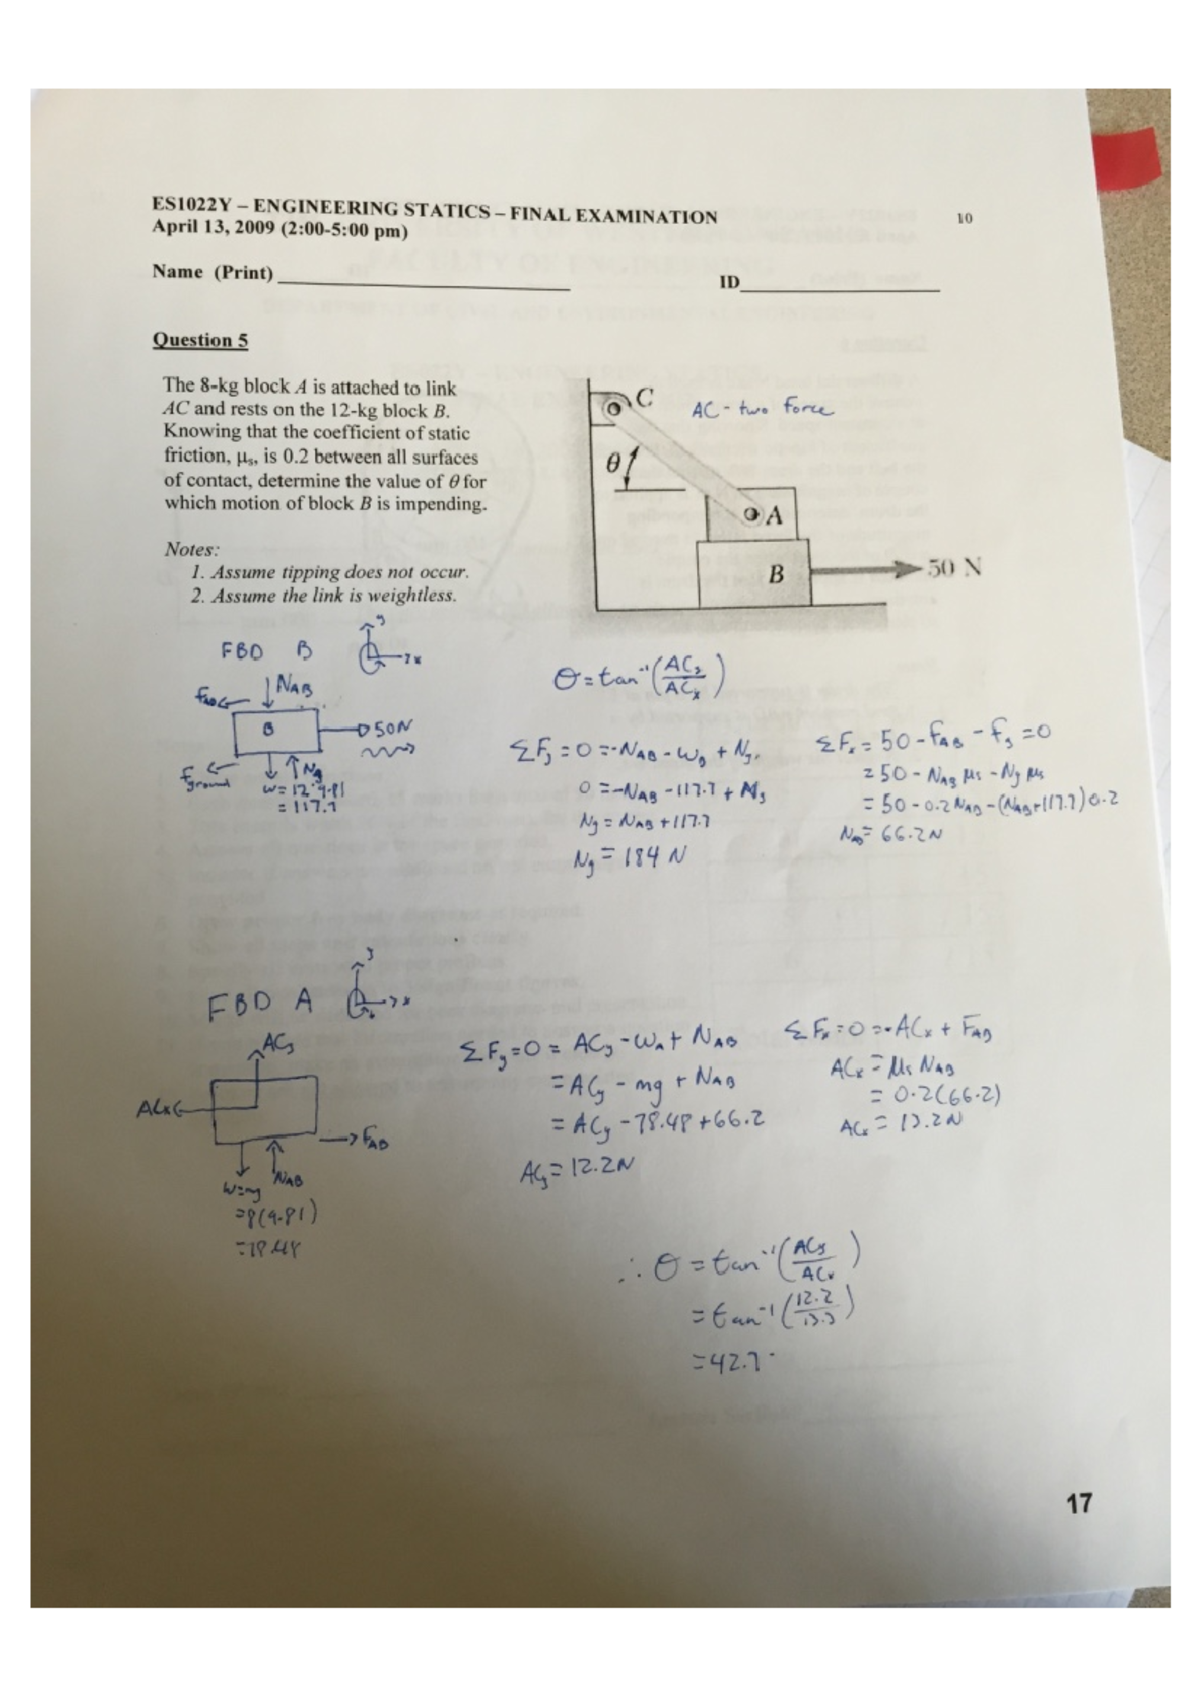 ES1022Y – ENGINEERING STATICS – FINAL EXAMINATION
10
April 13, 2009 (2:00-5:00 pm)
Name (Print)
ID
Question 5
The 8-kg block A is attached to link
AC and rests on the 12-kg block B.
Knowing that the coefficient of static
friction, μs, is 0.2 between all surfaces
of contact, determine the value of θ for
which motion of block B is impending.
Notes:
1. Assume tipping does not occur.
2. Assume the link is weightless.
C
AC - two force
θ
A
B
50 N
FBD B
y
x
NAB
fAB
B
50N
fground
Ng
w = 12·9.81
= 117.7
θ = tan⁻¹(ACy/ACx)
ΣFy = 0 = -NAB - WB + Ng
0 = -NAB - 117.7 + Ng
Ng = NAB + 117.7
Ng = 184 N
ΣFx = 50 - fAB - fg = 0
= 50 - NAB μs - Ng μs
= 50 - 0.2 NAB - (NAB + 117.7)0.2
NAB = 66.2N
FBD A
y
x
ACy
ACx
FAB
NAB
W=mg
=8(9.81)
=78.48
ΣFy = 0 = ACy - WA + NAB
= ACy - mg + NAB
= ACy - 78.48 + 66.2
ACy = 12.2N
ΣFx = 0 = -ACx + FAB
ACx = μs NAB
= 0.2(66.2)
ACx = 13.2N
∴ θ = tan⁻¹(ACy/ACx)
= tan⁻¹(12.2/13.3)
= 42.7°
17